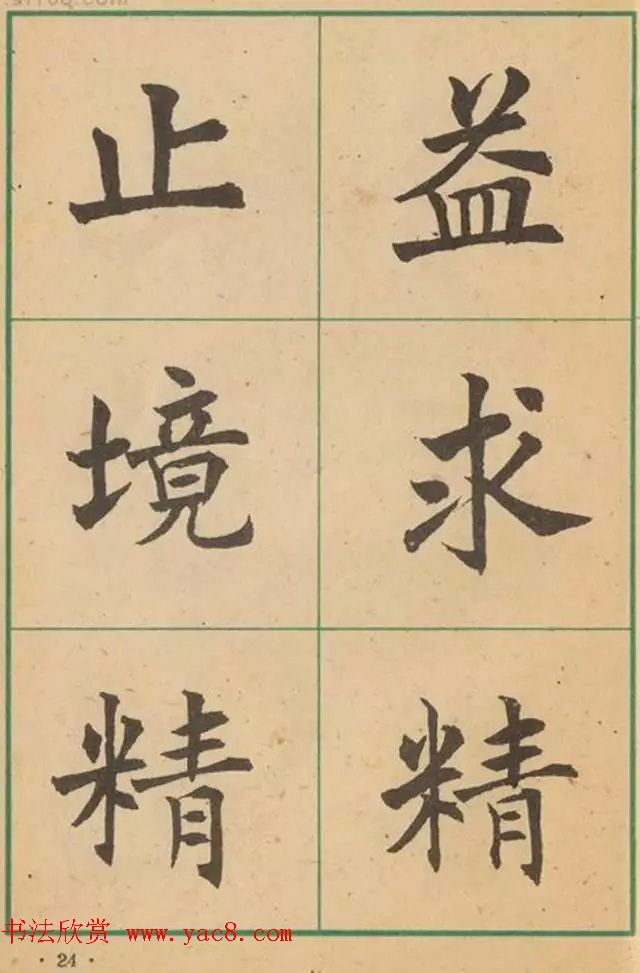 益求精
止境精
书法欣赏 www.yac8.com
·24·